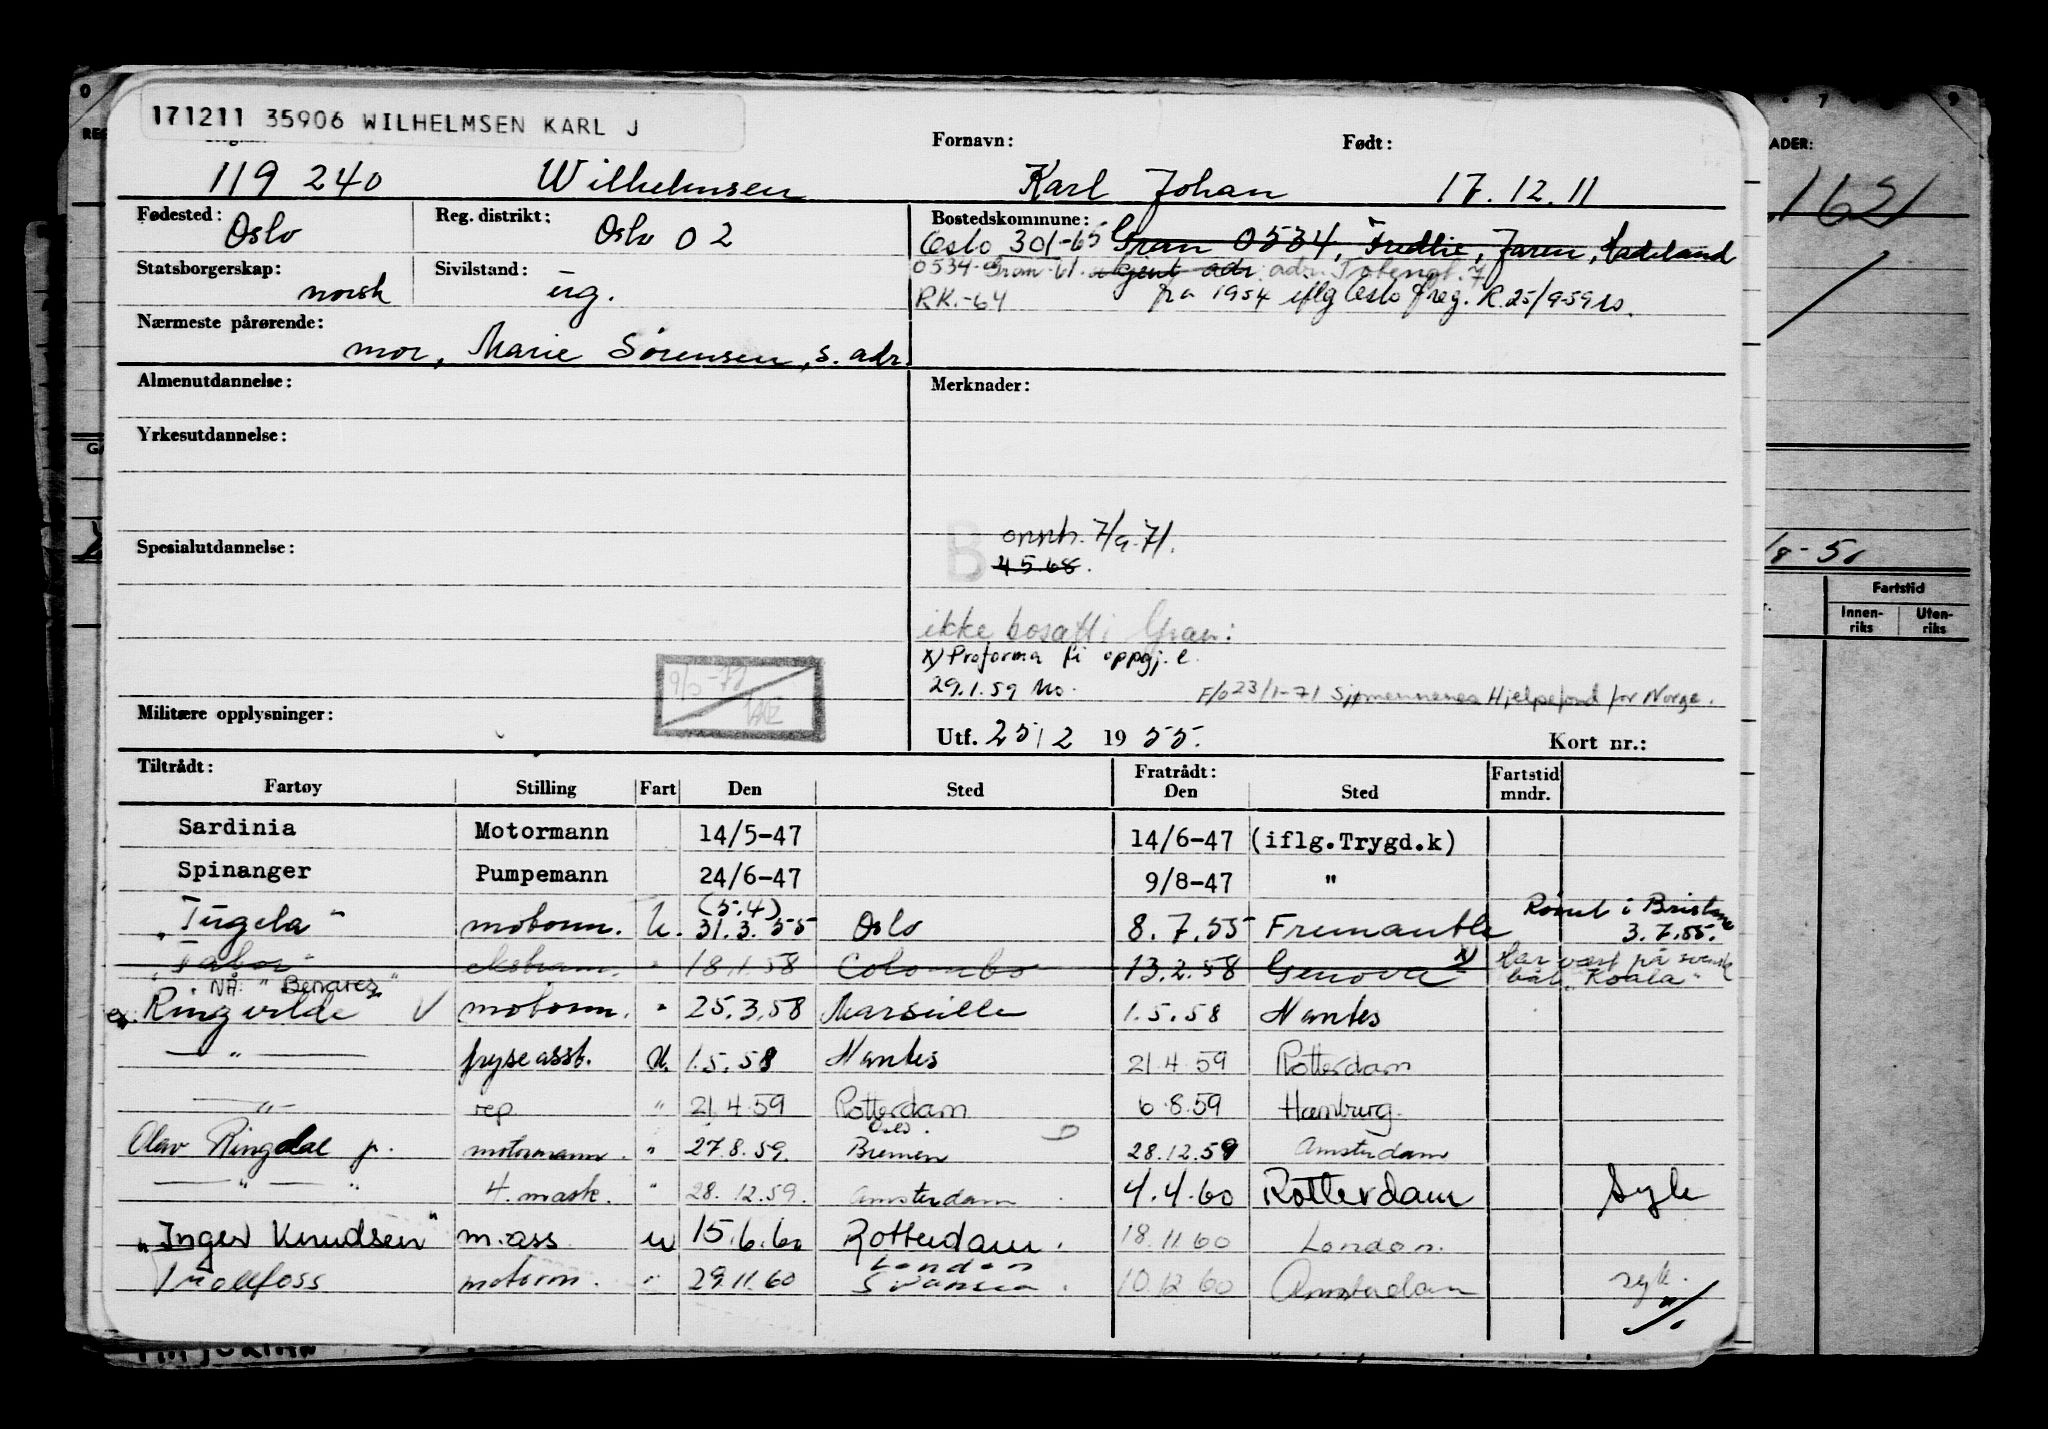 171211 35906 WILHELMSEN KARL J
Fornavn: Født:
119 240 Wilhelmsen Karl Johan 17.12.11
Fødested: Oslo Reg. distrikt: Oslo 02 Bostedskommune:
Oslo 301-65 Gran 0534, Fredlie, Jaren, Hadeland
Statsborgerskap: norsk Sivilstand: ug.
0534 Gran-61. adr. adr. Totengt. 7
RK.-64 fra 1954 iflg Oslo freg. R.25/9-59
Nærmeste pårørende:
mor, Marie Sørensen, s. adr.
Almenutdannelse: Merknader:
Yrkesutdannelse:
B 7/9-71.
4.5.68.
Spesialutdannelse:
ikke bosatt i Gran:
x) Proforma oppgj.
29.1.59 No.
F/o 23/1-71 Sjømennenes Hjelpefond for Norge.
Militære opplysninger:
Utf. 25/2 1955. Kort nr.:
Tiltrådt: Fratrådt: Fartstid
Fartøy Stilling Fart Den Sted Den Sted mndr.
Sardinia Motormann 14/5-47 14/6-47 (iflg.Trygd.k)
Spinanger Pumpemann 24/6-47 9/8-47 "
(5.4) Rømt i
"Tugela" motorm. U. 31.3.55 Oslo 8.7.55 Fremantle 3.7.55.
"Tabor" ekstram. " 18.1.58 Colombo 13.2.58 Genova x) har vært på svensk
båt "Koala"
NÅ: "Benares"
ex. Ringulda V motorm. " 25.3.58 Marseille 1.5.58 Nantes
— " — fryseasst. U. 1.5.58 Nantes 21.4.59 Rotterdam
— " — rep " 21.4.59 Rotterdam 6.8.59 Hamburg.
Oslo.
Olav Ringdal jr. motormann. " 27.8.59. Bremen 28.12.59 Amsterdam
— " — " 4. mask. " 28.12.59. Amsterdam 4.4.60 Rotterdam Syk
"Inger Knudsen" m.ass u 15.6.60 Rotterdam. 18.11.60 London.
London
Trollfoss motorm. " 29.11.60 Swansea. 10.12.60 Amsterdam syk.
ADER:
162
/8-51
Fartstid
Innen-
riks
Uten-
riks